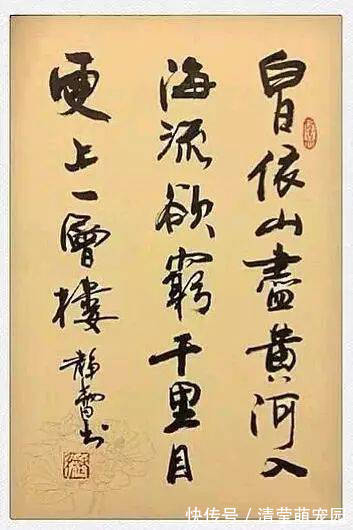 白日依山盡黄河入
海流欲窮千里目
更上一層樓 静雪书
快传号/清莹萌宠园